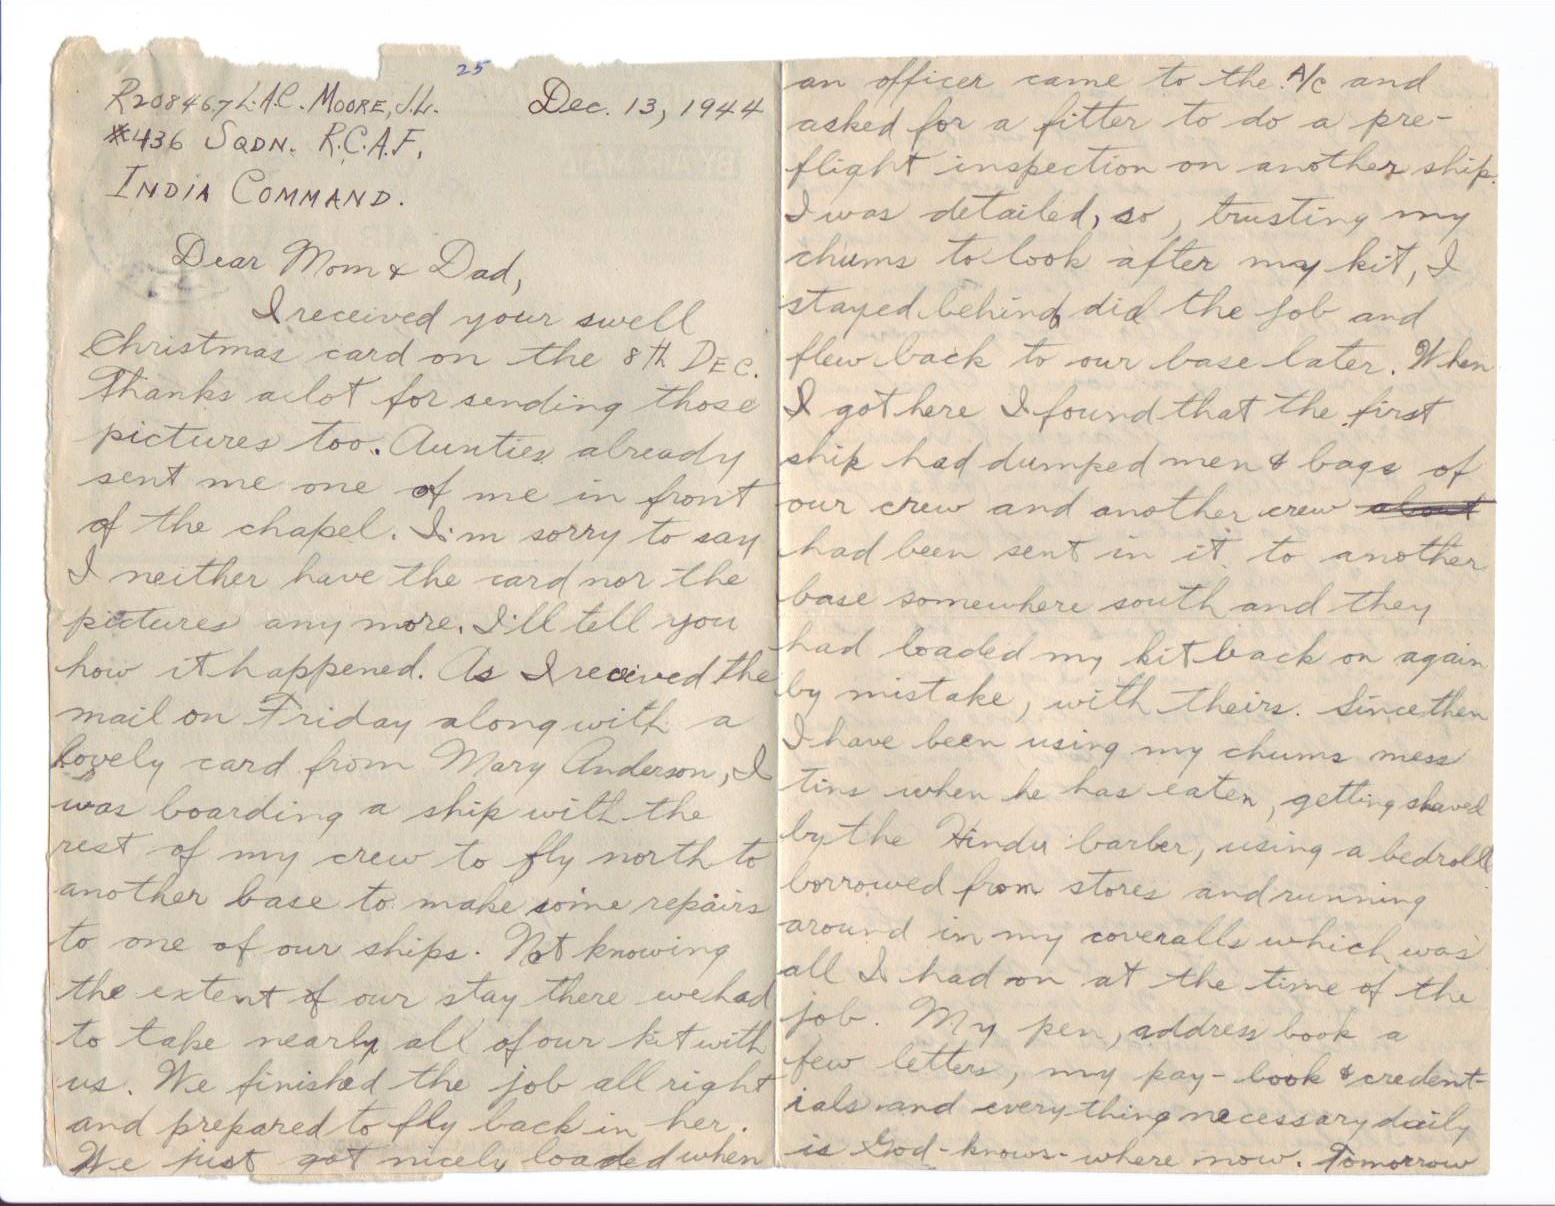 25
R208467 L.A.C. MOORE, J.L. Dec. 13, 1944
#436 SQDN. R.C.A.F.
INDIA COMMAND.
Dear Mom & Dad,
I received your swell
Christmas card on the 8th DEC.
Thanks a lot for sending those
pictures too. Aunties already
sent me one of me in front
of the chapel. I'm sorry to say
I neither have the card nor the
pictures any more. I'll tell you
how it happened. As I received the
mail on Friday along with a
lovely card from Mary Anderson, I
was boarding a ship with the
rest of my crew to fly north to
another base to make some repairs
to one of our ships. Not knowing
the extent of our stay there we had
to take nearly all of our kit with
us. We finished the job all right
and prepared to fly back in her.
We just got nicely loaded when
an officer came to the A/C and
asked for a fitter to do a pre-
flight inspection on another ship.
I was detailed, so, trusting my
chums to look after my kit, I
stayed behind, did the job and
flew back to our base later. When
I got here I found that the first
ship had dumped men & bags of
our crew and another crew about
had been sent in it to another
base somewhere south and they
had loaded my kit back on again
by mistake, with theirs. Since then
I have been using my chums mess
tins when he has eaten, getting shaved
by the Hindu barber, using a bedroll
borrowed from stores and running
around in my coveralls which was
all I had on at the time of the
job. My pen, address book a
few letters, my pay-book & credent-
ials and everything necessary daily
is God-knows-where now. Tomorrow